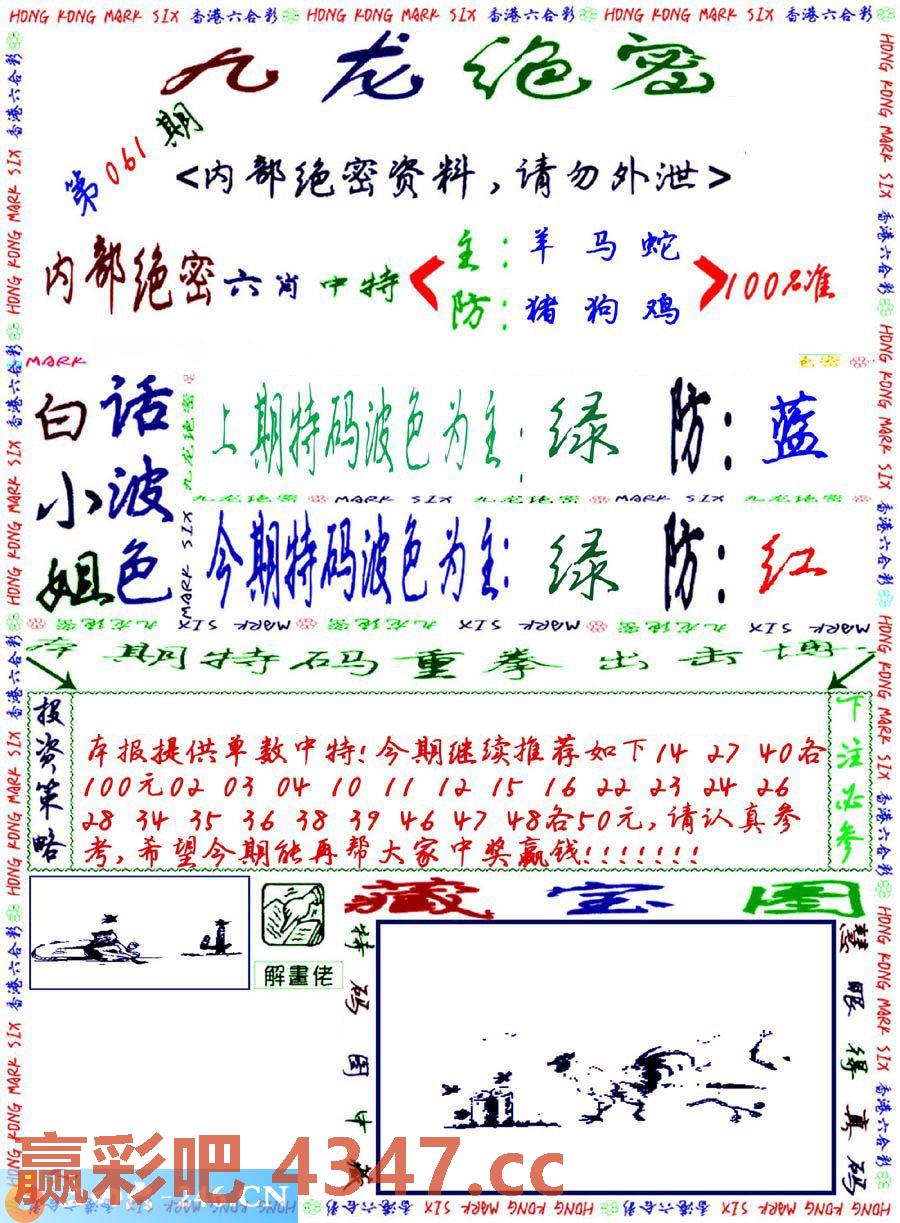 HONG KONG MARK SIX 香港六合彩 HONG KONG MARK SIX 香港六合彩 HONG KONG MARK SIX 香港六合彩
九龙绝密
第061期
<内部绝密资料，请勿外泄>
内部绝密六肖中特
主：羊马蛇
防：猪狗鸡
100%准
MARK
白话小波姐色
上期特码波色为主：绿 防：蓝
九龙绝密 MARK SIX 九龙绝密 MARK SIX 九龙绝密
今期特码波色为主：绿 防：红
MARK SIX 九龙绝密 MARK SIX 九龙绝密 MARK SIX 九龙绝密
期特码重拳出击
投资策略
本报提供单数中特！今期继续推荐如下14 27 40各
100元02 03 04 10 11 12 15 16 22 23 24 26
28 34 35 36 38 39 46 47 48各50元，请认真参
考，希望今期能再帮大家中奖赢钱！！！！！！！
下注必参
解畫佬
藏宝图
特码图中
慧眼得真码
赢彩吧 4347.cc
.CN